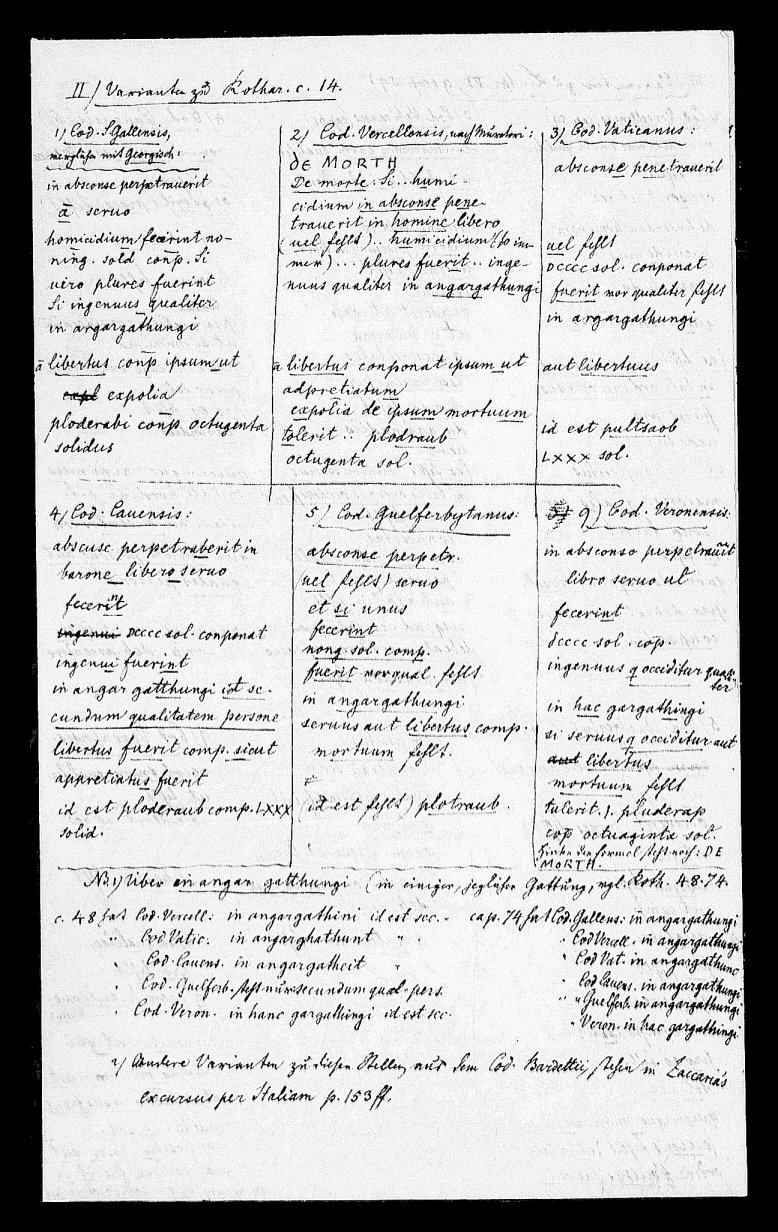 II) Varianten zu Rothar. c. 14.
1) Cod. SGallensis,
verglichen mit Georgisch:
in absconse perpetrauerit
ā seruo
homicidium fecerint no-
ning. sold conp. Si
uero plures fuerint
Si ingenuus qualiter
in argargathungi
ā libertus conp ipsum ut
expolia
ploderabi conp. octugenta
solidus
2) Cod. Vercellensis, nach Muratori:
DE MORTH
De morte. Si... humi-
cidium in absconse pene-
trauerit in homine libero
(uel fehlt).. humicidium (so im-
mer)... plures fuerit.. inge-
nuus qualiter in angargathungi
ā libertus conponat ipsum ut
adpretiatum
expolia de ipsum mortuum
tolerit .. plodraub
octugenta sol.
3) Cod. Vaticanus:
absconse penetrauerit
uel fehlt
DCCCC sol. conponat
fuerit vor qualiter fehlt
in argargathungi
aut libertuus
id est pultsaob
LXXX sol.
4) Cod. Cauensis:
abscuse perpetraberit in
barone libero seruo
fecerint
ingenui DCCCC sol. conponat
ingenui fuerint
in angar gatthungi id se-
cundum qualitatem persone
libertus fuerit comp. sicut
appretiatus fuerit
id est ploderaub comp. LXXX
solid.
5) Cod. Guelferbytanus:
absconse perpetr.
(uel fehlt) seruo
et si unus
fecerint
nong. sol. comp.
fuerit vor qual. fehlt
in angargathungi
seruus aut libertus comp.
mortuum fehlt.
(id est fehlt) plotraub.
9) Cod. Veronensis:
in absconso perpetrauit
libro seruo ut
fecerint
dcccc sol. cop.
ingenuus q occiditur quali-
ter
in hac gargathingi
si seruus q occiditur aut
aut libertus
mortuum fehlt
tulerit .1. pluderap
cop octuaginta sol.
Hinter der Formel steht noch: DE
MORTH.
Nb. 1) Über en angar gatthungi (in einiger, jeglicher Gattung, vgl. Roth. 48. 74.
c. 48 hat Cod. Vercell: in angargathini id est sec. cap. 74 hat Cod. Gallens: in angargathungi
" Cod Vatic: in angarghathunt " " " Cod Vercell. in angargathungi
" Cod. Cauens. in angargatheit " " Cod Vat. in angargathunc
" Cod. Guelferb. steht nur secundum qual. pers. " Cod Cauens. in angargathungi
" " Guelferb. in angargathungi
" Cod. Veron. in hanc gargathingi id est sec. " Veron. in hac gargathingi
2) Andere Varianten zu diesen Stellen aus dem Cod. Bardettii stehen in Zaccaria's
excursus per Italiam p. 153 ff.